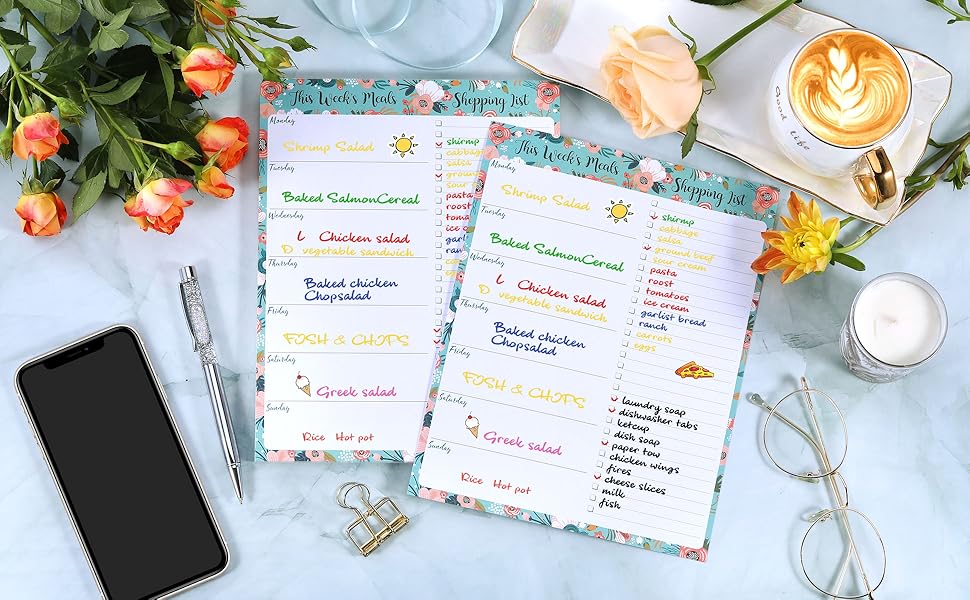 This Week's Meals
Shopping List
Monday
Shrimp Salad
Tuesday
Baked SalmonCereal
Wednesday
L Chicken salad
D vegetable sandwich
Thursday
Baked chicken
Chopsalad
Friday
FISH & CHIPS
Saturday
Greek salad
Sunday
Rice Hot pot
shirmp
cabbage
salsa
ground
sour
pasta
roost
toma
ice
garlic
ran
This Week's Meals
Shopping List
Monday
Shrimp Salad
Tuesday
Baked SalmonCereal
Wednesday
L Chicken salad
D vegetable sandwich
Thursday
Baked chicken
Chopsalad
Friday
FISH & CHIPS
Saturday
Greek salad
Sunday
Rice Hot pot
shirmp
cabbage
salsa
ground beef
sour cream
pasta
roost
tomatoes
ice cream
garlist bread
ranch
carrots
eggs
laundry soap
dishwasher tabs
ketcup
dish soap
paper tow
chicken wings
fires
cheese slices
milk
fish
Good life